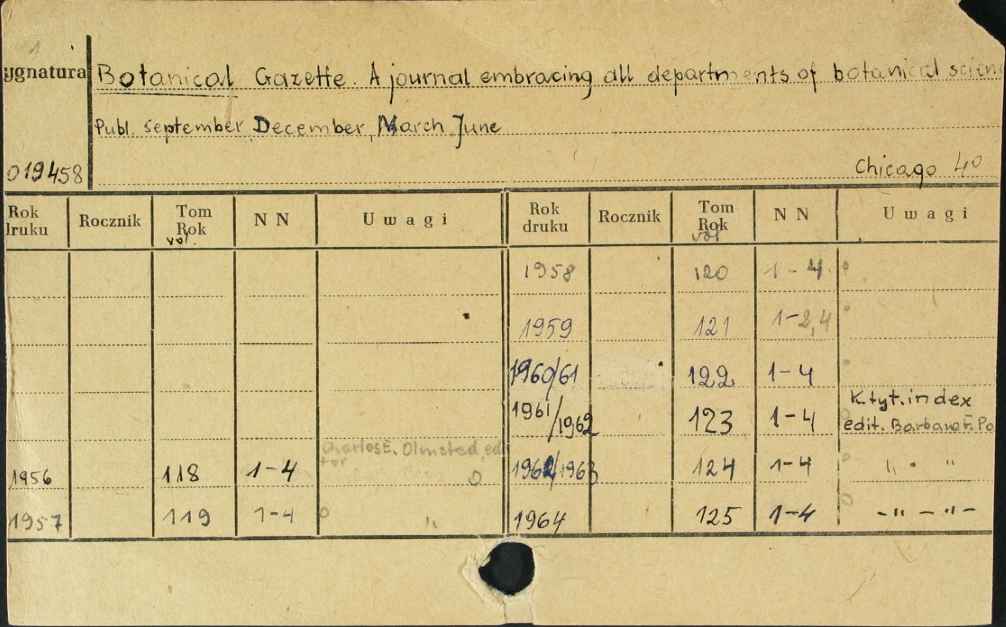 ygnatura Botanical Gazette. A journal embracing all departments of botanical scien
Publ. september, December, March June
019458 Chicago 40
Rok druku Rocznik Tom Rok vol. NN Uwagi Rok druku Rocznik Tom Rok vol NN Uwagi
1958 120 1-4
1959 121 1-2,4
1960/61 122 1-4
1961/1962 123 1-4 K.tyt.index edit. Barbara F. Pa
1956 118 1-4 Charles E. Olmsted editor 1962/1963 124 1-4 " - "
1957 119 1-4 " 1964 125 1-4 -"-"-